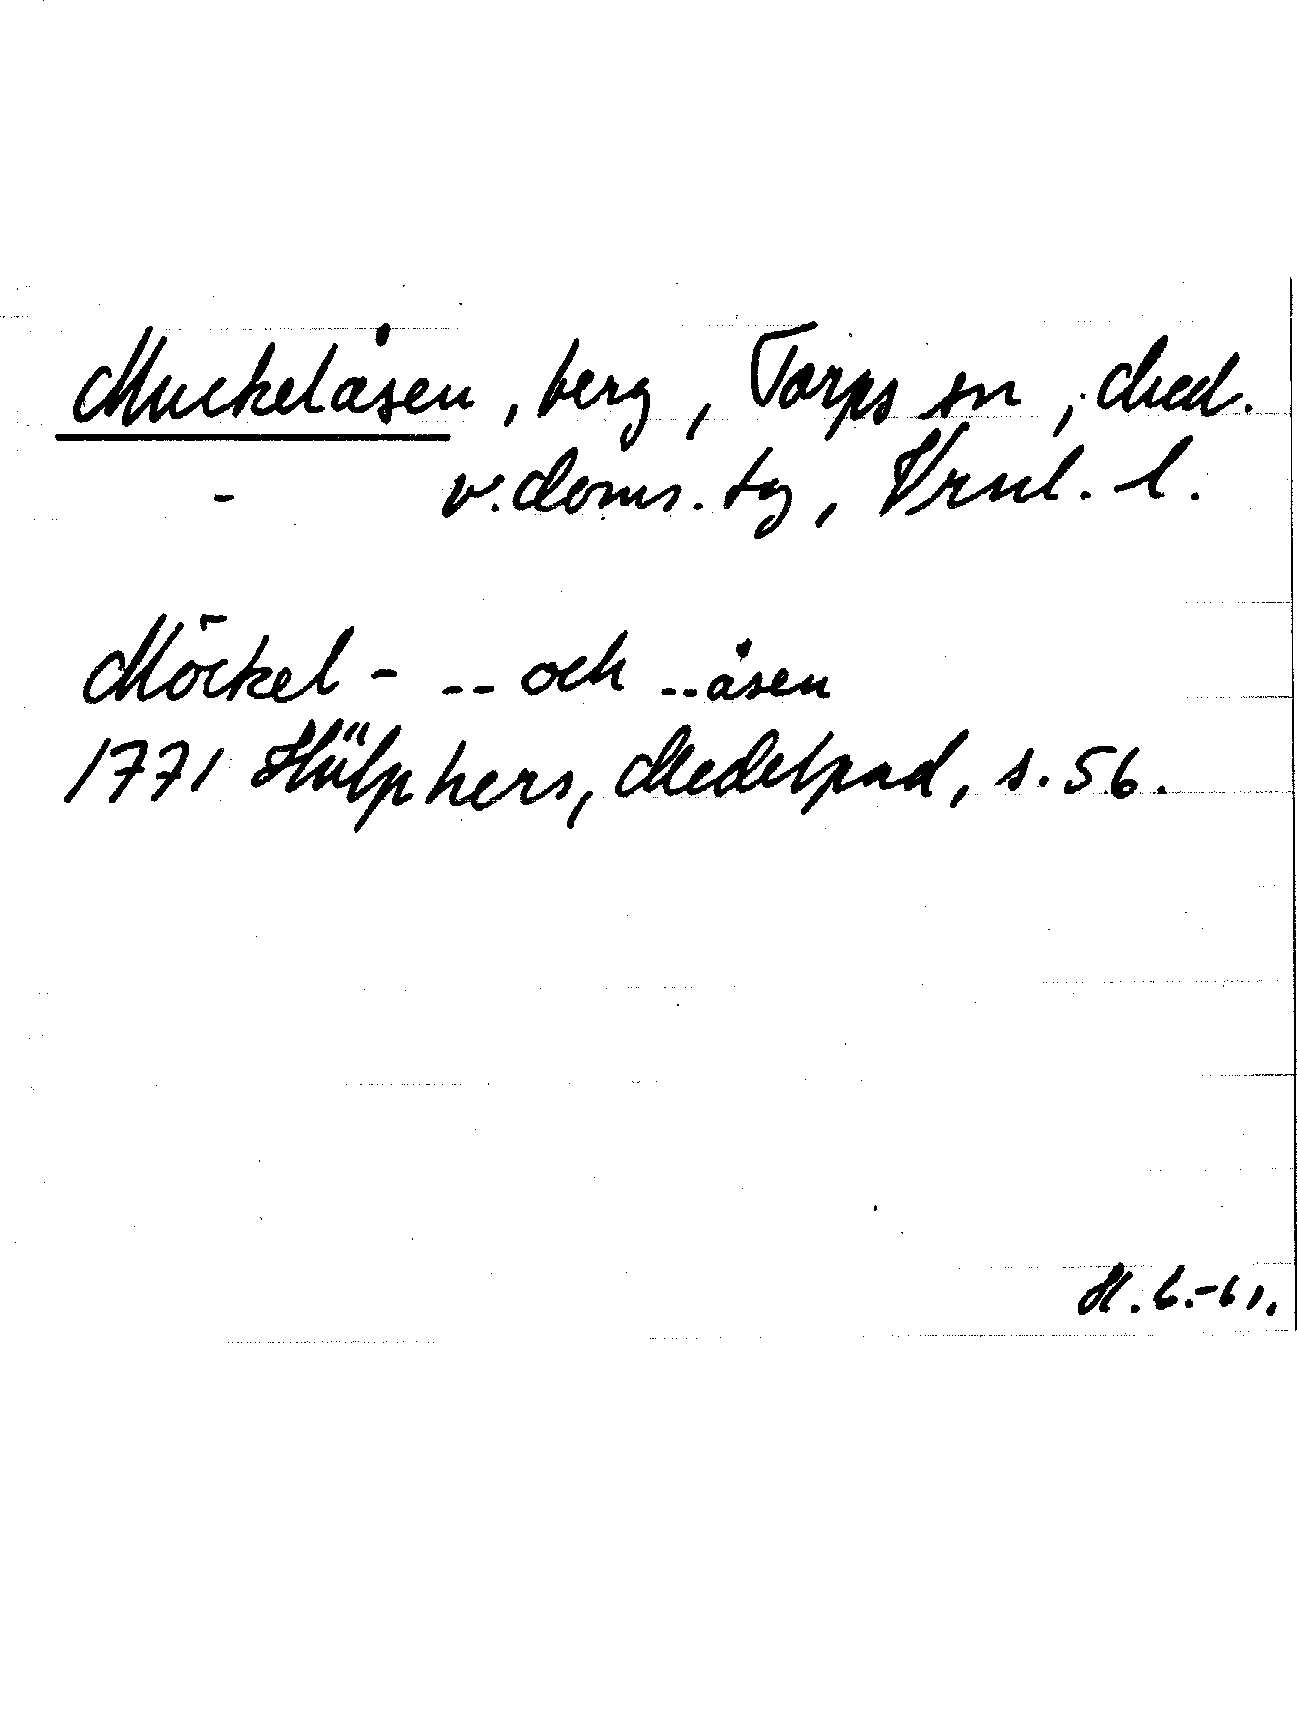 Muckelåsen, berg, Torps sn, Med.
- v. doms. tg, Vrnl. l.
Möckel- -- och --åsen
1771 Hülphers, Medelpad, s. 56.
H. 6.-61.